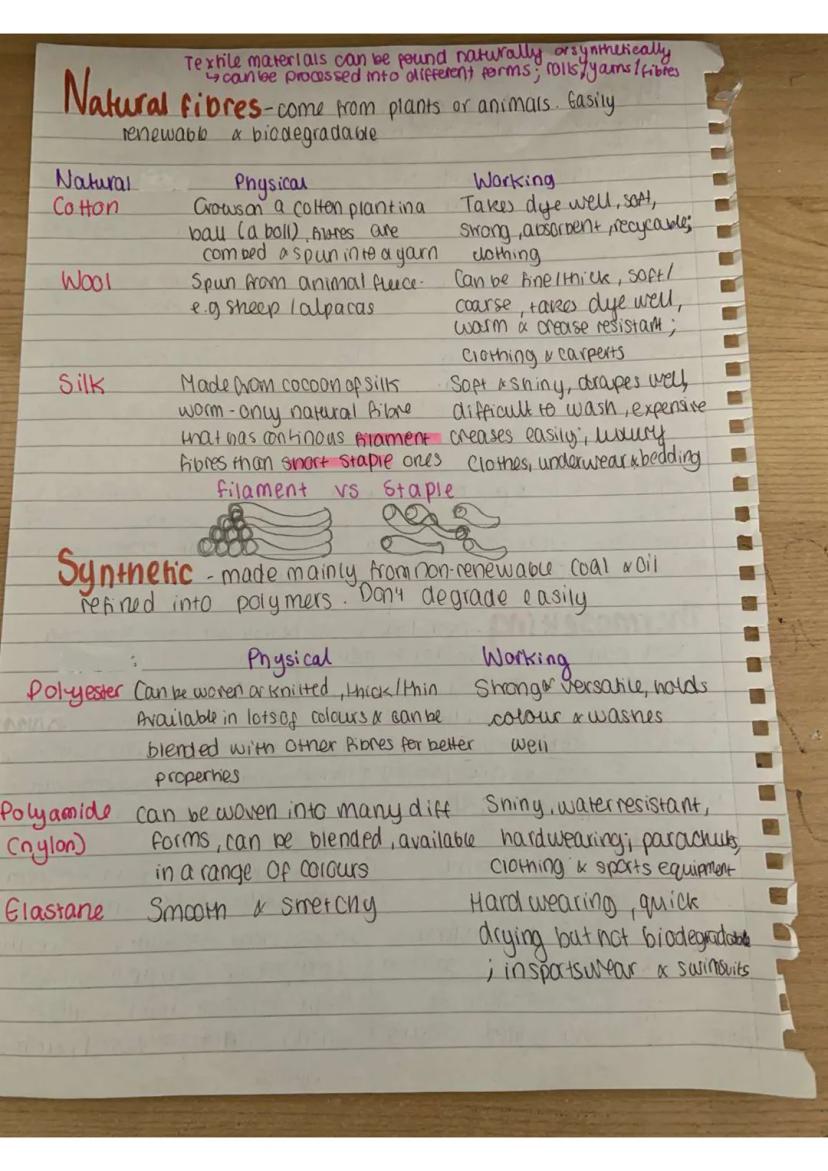 Textile materials can be found naturally or synthetically
↳ can be processed into different forms; rolls/yarns/fibres
Natural fibres - come from plants or animals. Easily
renewable & biodegradable
Natural Physical Working
Cotton Grows on a cotten plant in a Takes dye well, soft,
ball (a boll), fibres are strong, absorbent, recycable;
combed & spun into a yarn clothing
Wool Spun from animal fleece - Can be fine/thick, soft/
e.g sheep / alpacas coarse, takes dye well,
warm & crease resistant;
clothing & carperts
Silk Made from cocoon of silk Soft & shiny, drapes well,
worm - only natural fibre difficult to wash, expensive
that has continous filament creases easily; luxury
fibres than short staple ones clothes, underwear & bedding
filament vs Staple
Synthetic - made mainly from non-renewable coal & oil
refined into polymers. Don't degrade easily
Physical Working
Polyester Can be woven or knitted, thick/thin Strong & versatile, holds
Available in lots of colours & can be colour & washes
blended with other fibres for better well
properties
Polyamide can be woven into many diff Shiny, water resistant,
(nylon) forms, can be blended, available hardwearing; parachuts,
in a range of colours clothing & sports equipment
Elastane Smooth & stretchy Hard wearing, quick
drying but not biodegradable
; in sportswear & swimsuits